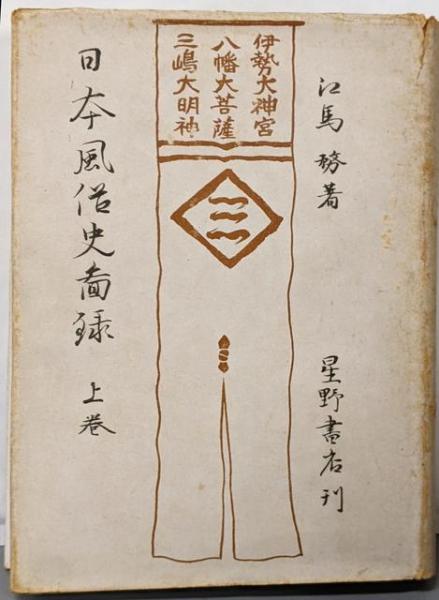 江馬務著
星野書店刊
伊勢大神宮
八幡大菩薩
三嶋大明神
日本風俗史図録 上巻